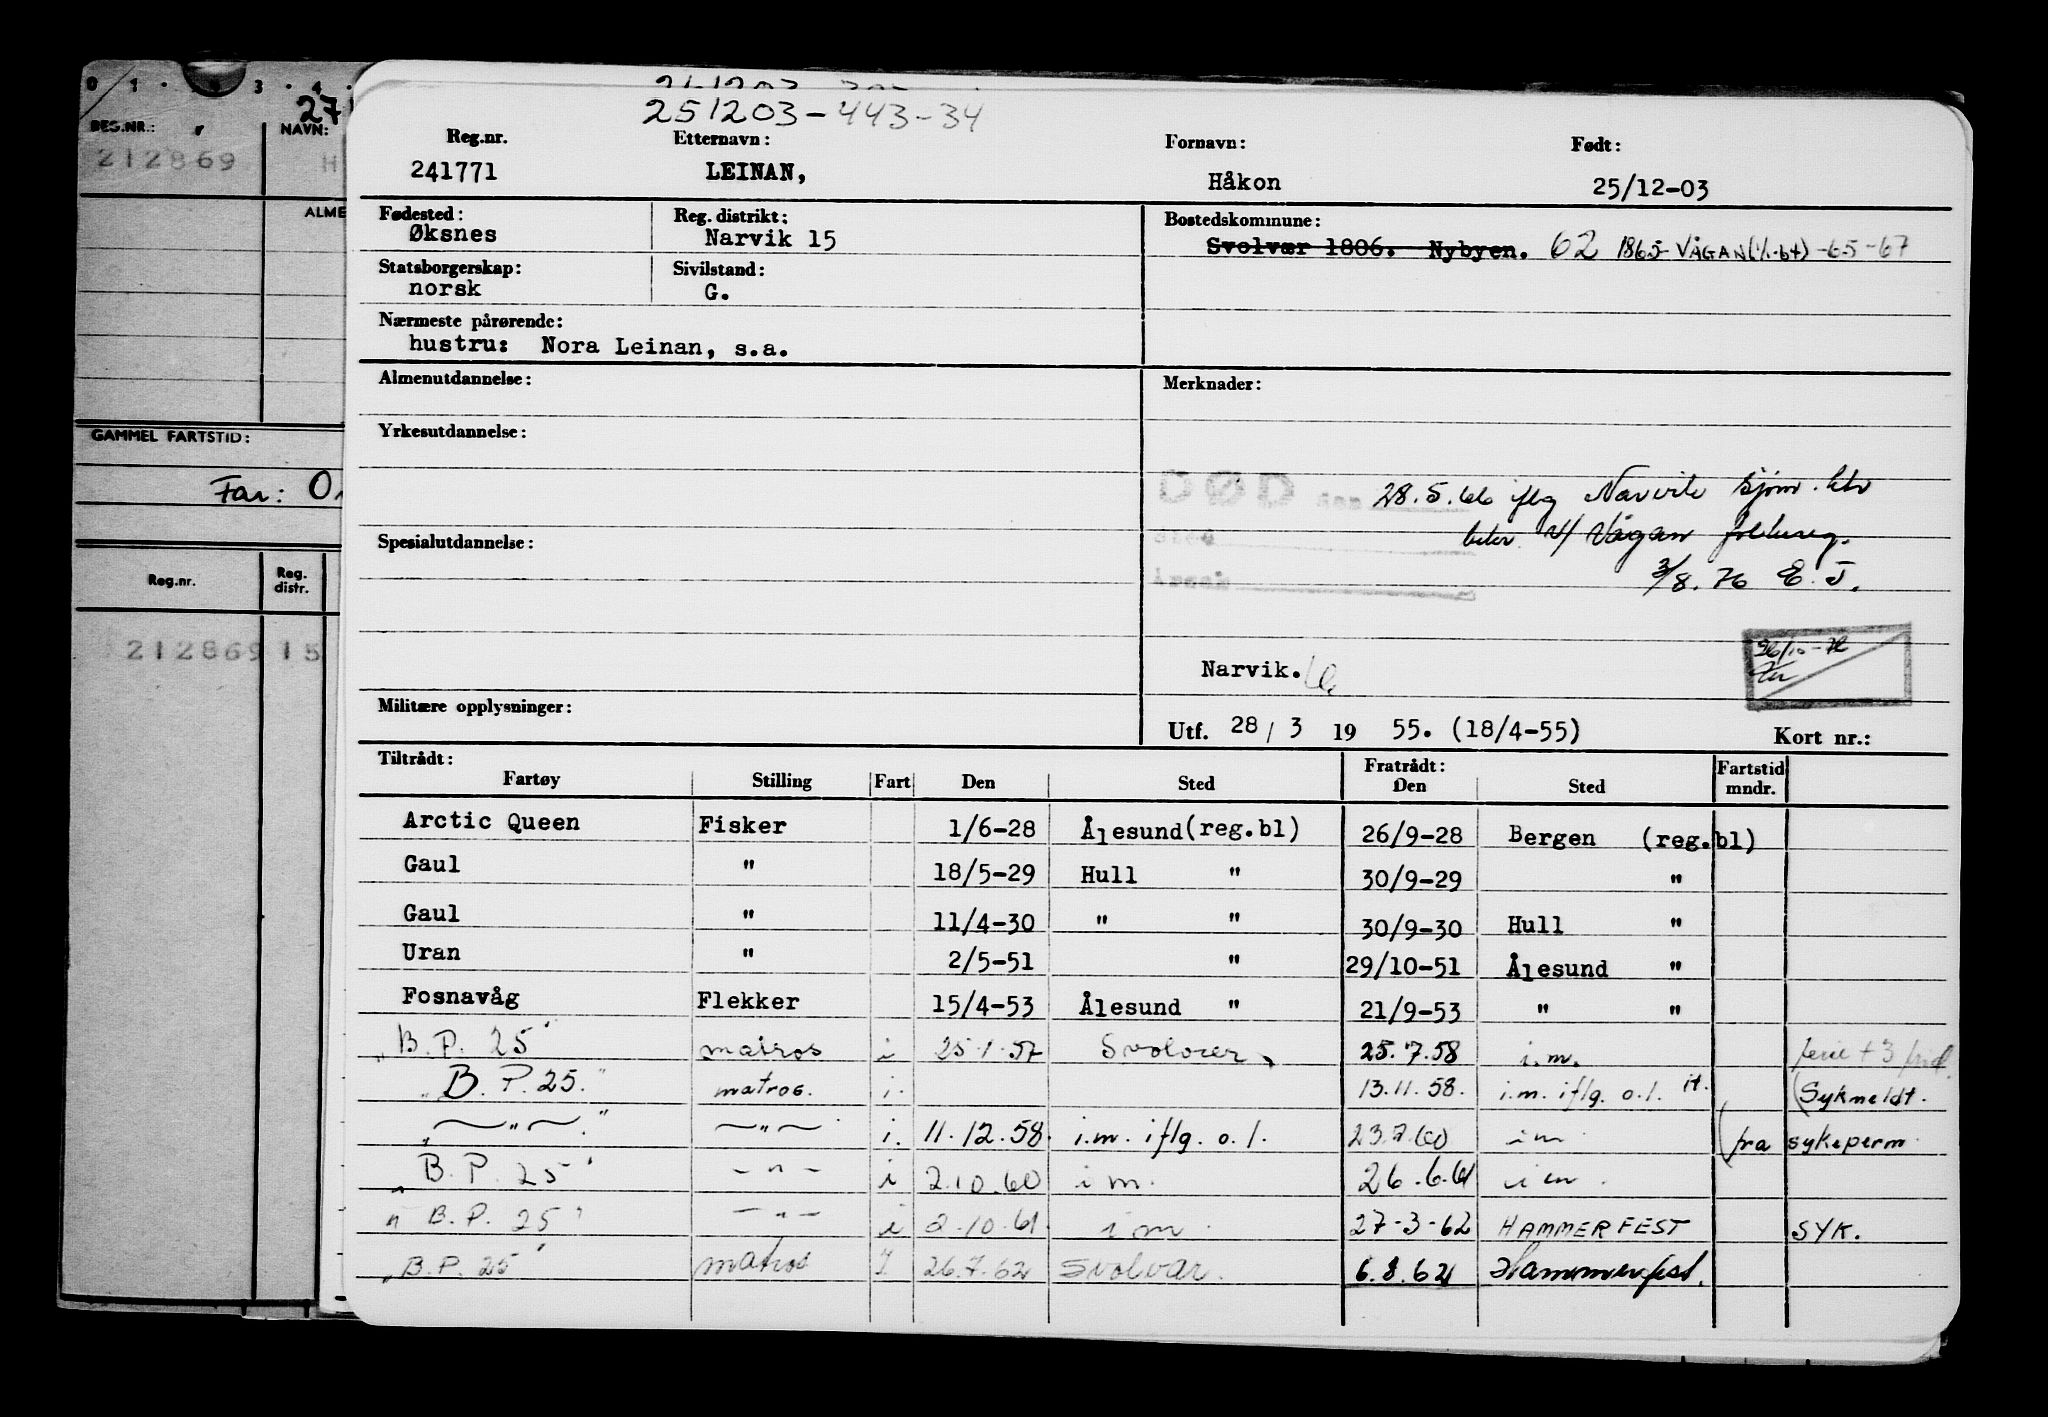 0 1 · 3 · 4 ·
27
BES.NR.: NAVN:
212869 H
ALME
GAMMEL FARTSTID:
Far:
Reg.nr. Reg. distr.
212869 15
251203-443-34
Reg.nr. Etternavn: Fornavn: Født:
241771 LEINAN, Håkon 25/12-03
Fødested: Reg. distrikt: Bostedskommune:
Øksnes Narvik 15 Svolvær 1806. Nybyen. 62 1865 VÅGAN (1/1-64) -65-67
Statsborgerskap: Sivilstand:
norsk G.
Nærmeste pårørende:
hustru: Nora Leinan, s.a.
Almenutdannelse: Merknader:
Yrkesutdannelse:
DØD den 28.5.66 iflg Narvik sjøm. ktr
sted bekr. v/ Vågan folkereg.
årsak 3/8.76 E.J.
Spesialutdannelse:
Narvik.
26/10-76
Militære opplysninger:
Utf. 28 / 3 19 55. (18/4-55) Kort nr.:
Tiltrådt: Fratrådt:
Fartøy Stilling Fart Den Sted Den Sted Fartstid mndr.
Arctic Queen Fisker 1/6-28 Ålesund (reg.bl) 26/9-28 Bergen (reg.bl)
Gaul " 18/5-29 Hull " 30/9-29 "
Gaul " 11/4-30 " " 30/9-30 Hull "
Uran " 2/5-51 " 29/10-51 Ålesund "
Fosnavåg Flekker 15/4-53 Ålesund " 21/9-53 " "
"B.P. 25" matros i 25.1.57 Svolvær 25.7.58 i.m. ferie + 3 frid.
"B.P. 25." matros. i. 13.11.58. i.m. iflg. o.l. it. (Sykmeldt.
" — " — " — " — i. 11.12.58. i.m. iflg. o.l. 23.7.60 i m (fra sykeperm.
"B.P. 25" - " - i 2.10.60 i m. 26.6.61 i m.
"B.P. 25" - " - i 2.10.61. i m. 27-3-62 HAMMERFEST SYK.
"B.P. 25" matros I 26.7.62 Svolvær. 6.8.62 Hammerfest.